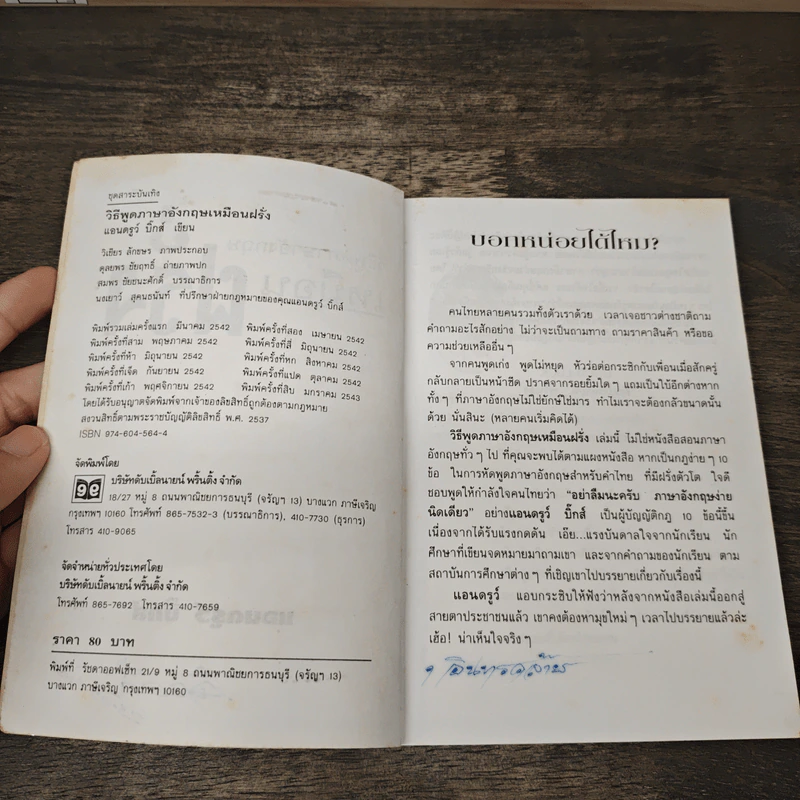 ชุดสาระบันเทิง
วิธีพูดภาษาอังกฤษเหมือนฝรั่ง
แอนดรูว์ บิ๊กส์ เขียน
วิเชียร ลักขษร ภาพประกอบ
ดุลยพร ชัยฤทธิ์ ถ่ายภาพปก
สมพร ชัยชนะศักดิ์ บรรณาธิการ
นงเยาว์ สุคนธนันท์ ที่ปรึกษาฝ่ายกฎหมายของคุณแอนดรูว์ บิ๊กส์
พิมพ์รวมเล่มครั้งแรก มีนาคม 2542 พิมพ์ครั้งที่สอง เมษายน 2542
พิมพ์ครั้งที่สาม พฤษภาคม 2542 พิมพ์ครั้งที่สี่ มิถุนายน 2542
พิมพ์ครั้งที่ห้า มิถุนายน 2542 พิมพ์ครั้งที่หก สิงหาคม 2542
พิมพ์ครั้งที่เจ็ด กันยายน 2542 พิมพ์ครั้งที่แปด ตุลาคม 2542
พิมพ์ครั้งที่เก้า พฤศจิกายน 2542 พิมพ์ครั้งที่สิบ มกราคม 2543
โดยได้รับอนุญาตจัดพิมพ์จากเจ้าของลิขสิทธิ์ถูกต้องตามกฎหมาย
สงวนสิทธิ์ตามพระราชบัญญัติลิขสิทธิ์ พ.ศ. 2537
ISBN 974-604-564-4
จัดพิมพ์โดย
บริษัทดับเบิ้ลนายน์ พริ้นติ้ง จำกัด
18/27 หมู่ 8 ถนนพาณิชยการธนบุรี (จรัญฯ 13) บางแวก ภาษีเจริญ
กรุงเทพฯ 10160 โทรศัพท์ 865-7532-3 (บรรณาธิการ), 410-7730 (ธุรการ)
โทรสาร 410-9065
จัดจำหน่ายทั่วประเทศโดย
บริษัทดับเบิ้ลนายน์ พริ้นติ้ง จำกัด
โทรศัพท์ 865-7692 โทรสาร 410-7659
ราคา 80 บาท
พิมพ์ที่ รัชดาออฟเซ็ท 21/9 หมู่ 8 ถนนพาณิชยการธนบุรี (จรัญฯ 13)
บางแวก ภาษีเจริญ กรุงเทพฯ 10160
บอกหน่อยได้ไหม?
คนไทยหลายคนรวมทั้งตัวเราด้วย เวลาเจอชาวต่างชาติถาม
คำถามอะไรสักอย่าง ไม่ว่าจะเป็นถามทาง ถามราคาสินค้า หรือขอ
ความช่วยเหลืออื่นๆ
จากคนพูดเก่ง พูดไม่หยุด หัวร่อต่อกระซิกกับเพื่อนเมื่อสักครู่
กลับกลายเป็นหน้าซีด ปราศจากรอยยิ้มใดๆ แถมเป็นใบ้อีกต่างหาก
ทั้งๆ ที่ภาษาอังกฤษไม่ใช่ยักษ์ใช่มาร ทำไมเราจะต้องกลัวขนาดนั้น
ด้วย นั่นสินะ (หลายคนเริ่มคิดได้)
วิธีพูดภาษาอังกฤษเหมือนฝรั่ง เล่มนี้ ไม่ใช่หนังสือสอนภาษา
อังกฤษทั่วๆ ไป ที่คุณจะพบได้ตามแผงหนังสือ หากเป็นกฎง่ายๆ 10
ข้อ ในการหัดพูดภาษาอังกฤษสำหรับคำไทย ที่มีฝรั่งตัวโต ใจดี
ชอบพูดให้กำลังใจคนไทยว่า "อย่าลืมนะครับ ภาษาอังกฤษง่าย
นิดเดียว" อย่างแอนดรูว์ บิ๊กส์ เป็นผู้บัญญัติกฎ 10 ข้อนี้ขึ้น
เนื่องจากได้รับแรงกดดัน เอ๊ย...แรงบันดาลใจจากนักเรียน นัก
ศึกษาที่เขียนจดหมายมาถามเขา และจากคำถามของนักเรียน ตาม
สถาบันการศึกษาต่างๆ ที่เชิญเขาไปบรรยายเกี่ยวกับเรื่องนี้
แอนดรูว์ แอบกระซิบให้ฟังว่าหลังจากหนังสือเล่มนี้ออกสู่
สายตาประชาชนแล้ว เขาคงต้องหามุขใหม่ๆ เวลาไปบรรยายแล้วล่ะ
เฮ้อ! น่าเห็นใจจริงๆ